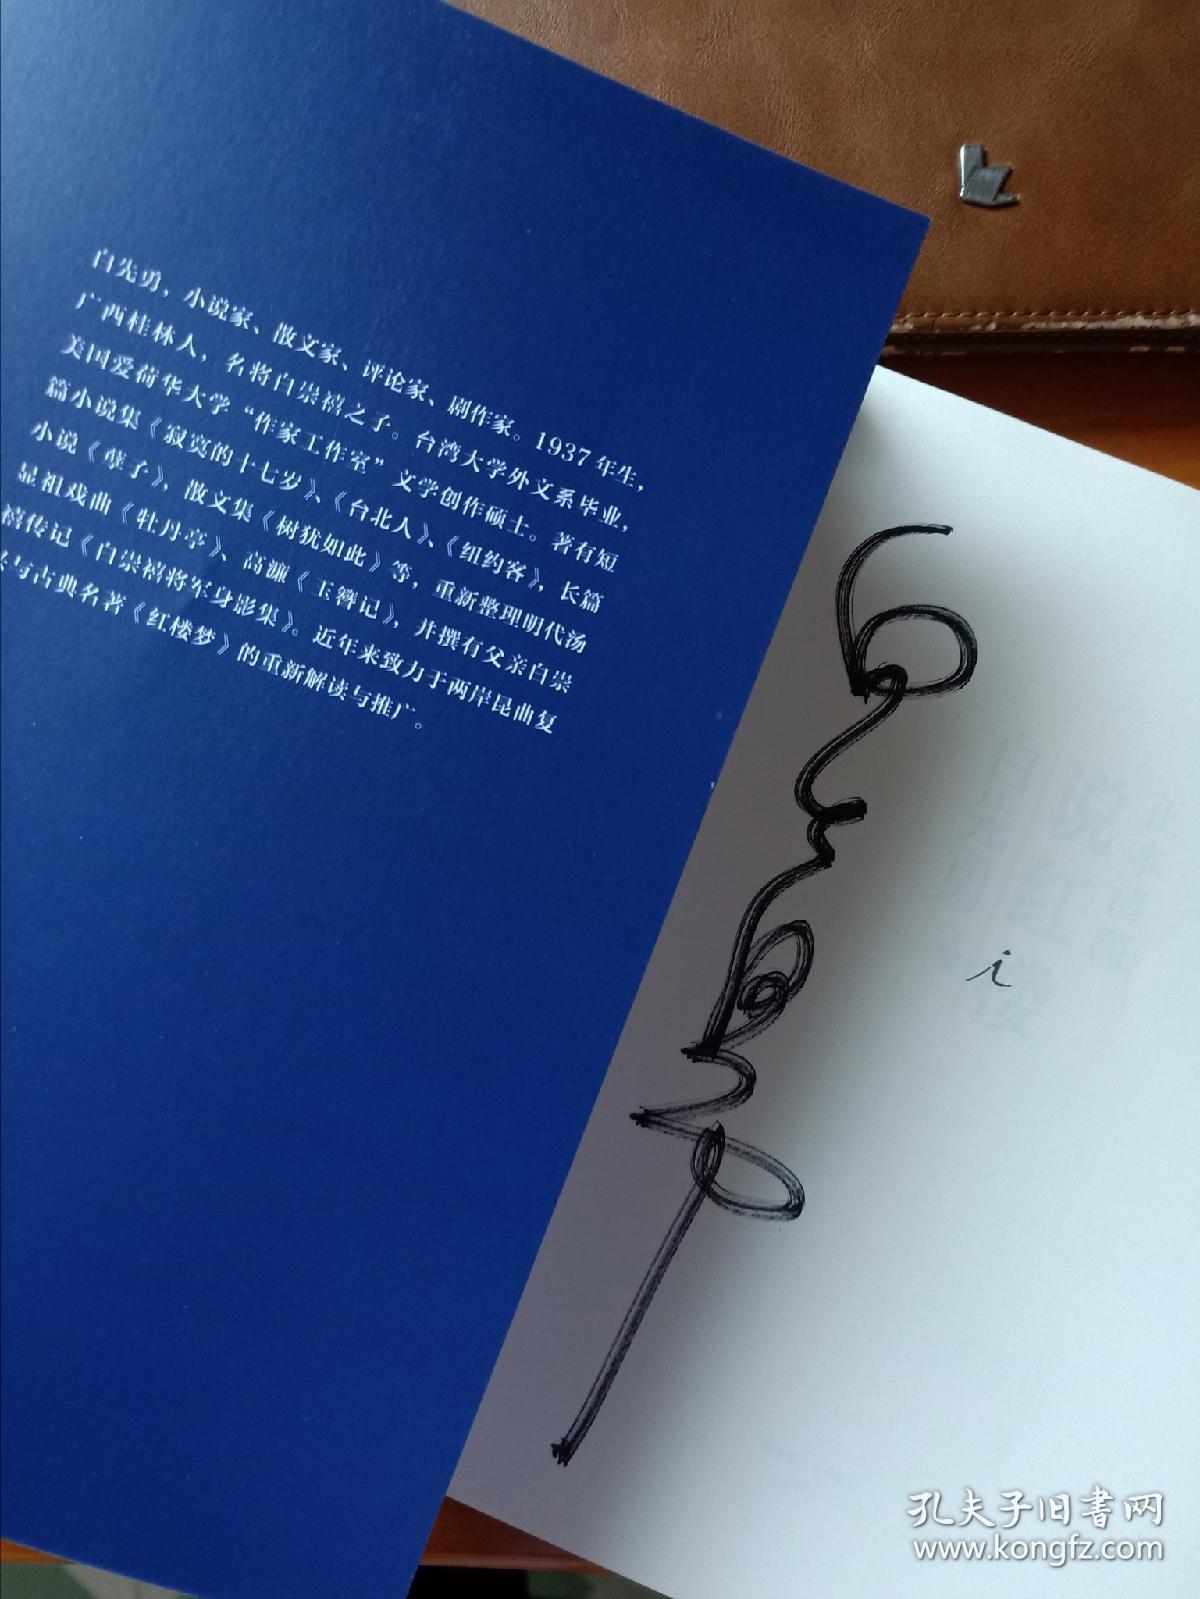 白先勇，小说家、散文家、评论家、剧作家。1937年生，
广西桂林人，名将白崇禧之子。台湾大学外文系毕业，
美国爱荷华大学“作家工作室”文学创作硕士。著有短
篇小说集《寂寞的十七岁》、《台北人》、《纽约客》，长篇
小说《孽子》，散文集《树犹如此》等，重新整理明代汤
显祖戏曲《牡丹亭》、高濂《玉簪记》，并撰有父亲白崇
禧传记《白崇禧将军身影集》。近年来致力于两岸昆曲复
兴与古典名著《红楼梦》的重新解读与推广。
i
孔夫子旧書网
www.kongfz.com